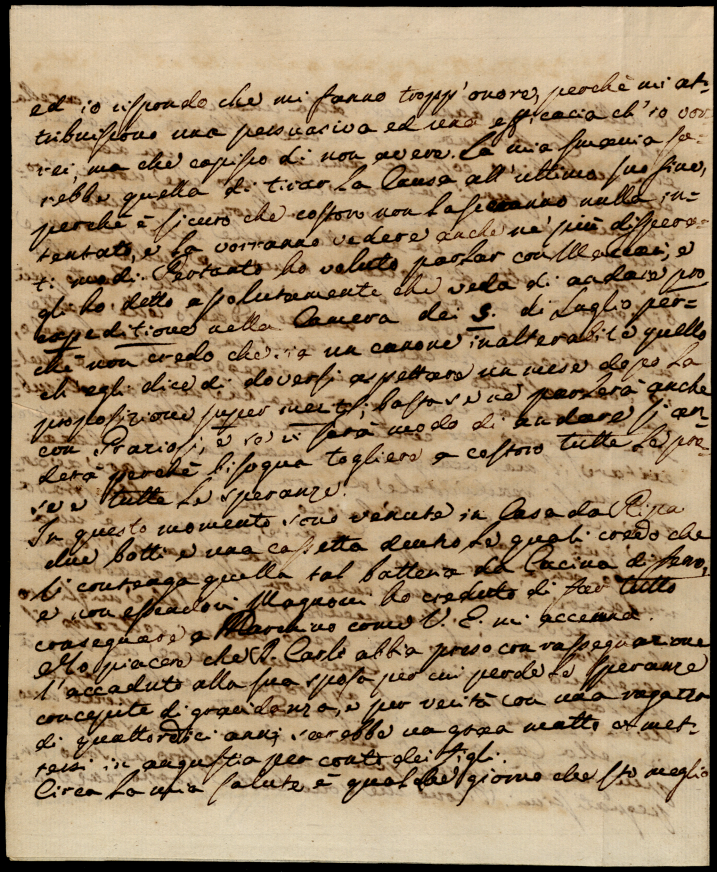 ed io rispondo che mi fanno tropp'onore, perchè mi at-
tribuiscono una persuasiva ed una efficacia ch'io vor
rei, ma che capisco di non avere. La mia smania sa-
rebbe quella di tirar la Causa all'ultimo suo fine,
perchè è sicuro che costoro non lasceranno nulla in-
tentato, e la vorranno vedere anche ne' più dispera-
ti modi. Pertanto ho voluto parlar con e
gli ho detto assolutamente che veda di andare pro
expeditione nella Camera dei 3. di Luglio per-
chè non credo che sia un canone inalterabile quello
ch'egli dice di doversi aspettare un mese dopo la
proposizione basta se ne parlerà anche
con Graziosi, e se vi sarà modo di andare si an-
derà perchè bisogna togliere a costoro tutte le pre
se e tutte le speranze.
In questo momento sono venute in Casa da Ripa
due botti e una cassetta dentro le quali credo che
si contenga quella tal batteria da Cucina di
e non essendovi Magnoni ho creduto di far tutto
consegnare a Marchino come V. E. mi accenna.
Ho piacere che D. Carlo abbia preso con rassegnazione
l'accaduto alla sua sposa per cui perde le speranze
concepite di gravidanza, e per verità con una ragazza
di quattordici anni, sarebbe un gran matto a met-
tersi in angustia per conto dei figli.
Circa la mia salute è qualche giorno che sto meglio